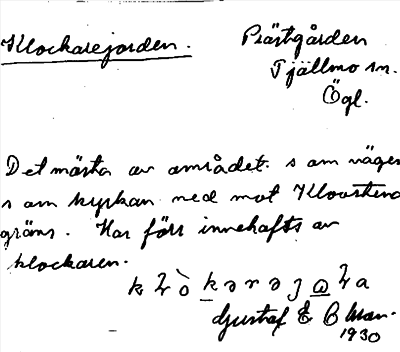 Klockarejorden.
Prästgården
Tjällmo sn.
Ögl.
Det mästa av området. s om väger
s om kyrkan ned mot
gräns. Har förr innehafts av
klockaren.
Gustaf E
1930